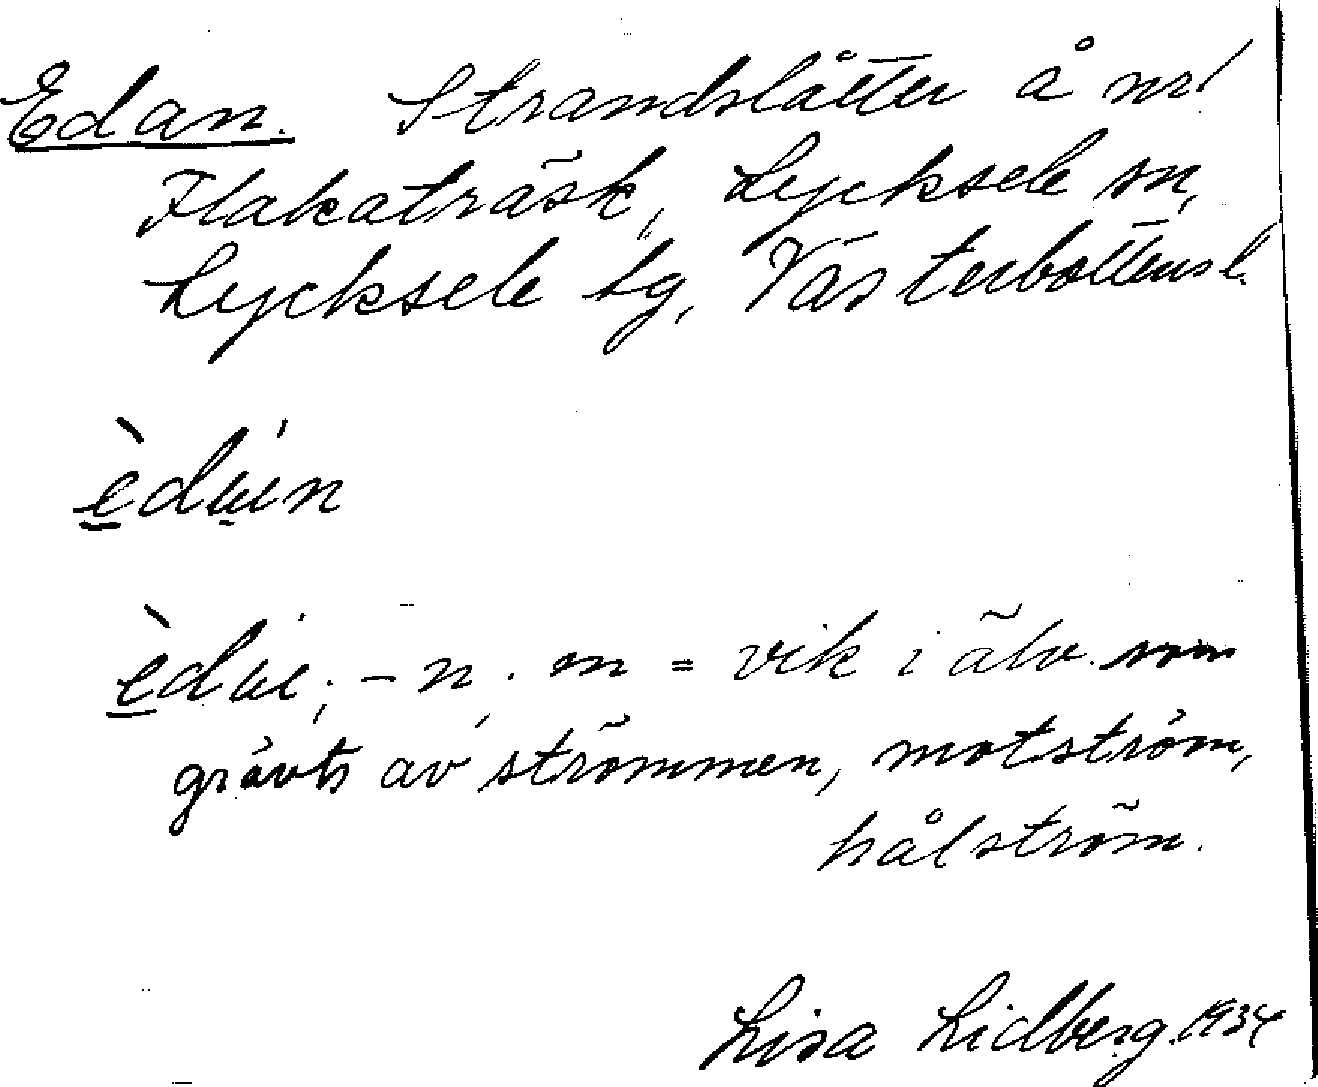 Edan. Strandslåtter å nr 1
Flakaträsk, Lycksele sn,
Lycksele tg, Västerbottens l.
èdɯin
èdɯi; -n. m = vik i älv som
grävts av strömmen, motström,
hålström.
Lisa Lidberg. 1934